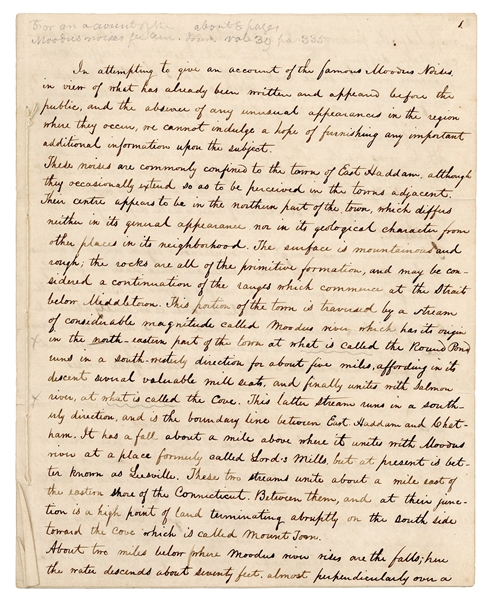 For an account of the about 8 pages
Moodus noises see Am. Jour. vol. 39 pa. 335
1
In attempting to give an account of the famous Moodus Noises,
in view of what has already been written and appeared before the
public, and the absence of any unusual appearances in the region
where they occur, we cannot indulge a hope of furnishing any important
additional information upon the subject.
These noises are commonly confined to the town of East Haddam, although
they occasionally extend so as to be perceived in the towns adjacent.
Their centre appears to be in the northern part of the town, which differs
neither in its general appearance nor in its geological character from
other places in its neighborhood. The surface is mountainous and
rough; the rocks are all of the primitive formation, and may be con-
sidered a continuation of the ranges which commence at the Strait
below Meddletown. This portion of the town is traversed by a stream
of considerable magnitude called Moodus river, which has its origin
in the north-eastern part of the town at what is called the Round Pond
runs in a south-westerly direction for about five miles, affording in its
descent several valuable mill seats, and finally unites with Salmon
river, at what is called the Cove. This latter stream runs in a south-
erly direction, and is the boundary line between East Haddam and Chat-
ham. It has a fall about a mile above where it unites with Moodus
river at a place formerly called Lord's Mills, but at present is bet-
ter known as Leesville. These two streams unite about a mile east of
the eastern shore of the Connecticut. Between them, and at their junc-
tion is a high point of land terminating abruptly on the south side
toward the Cove which is called Mount Toon.
About two miles below where Moodus river rises are the falls; here
the water descends about seventy feet, almost perpendicularly over a